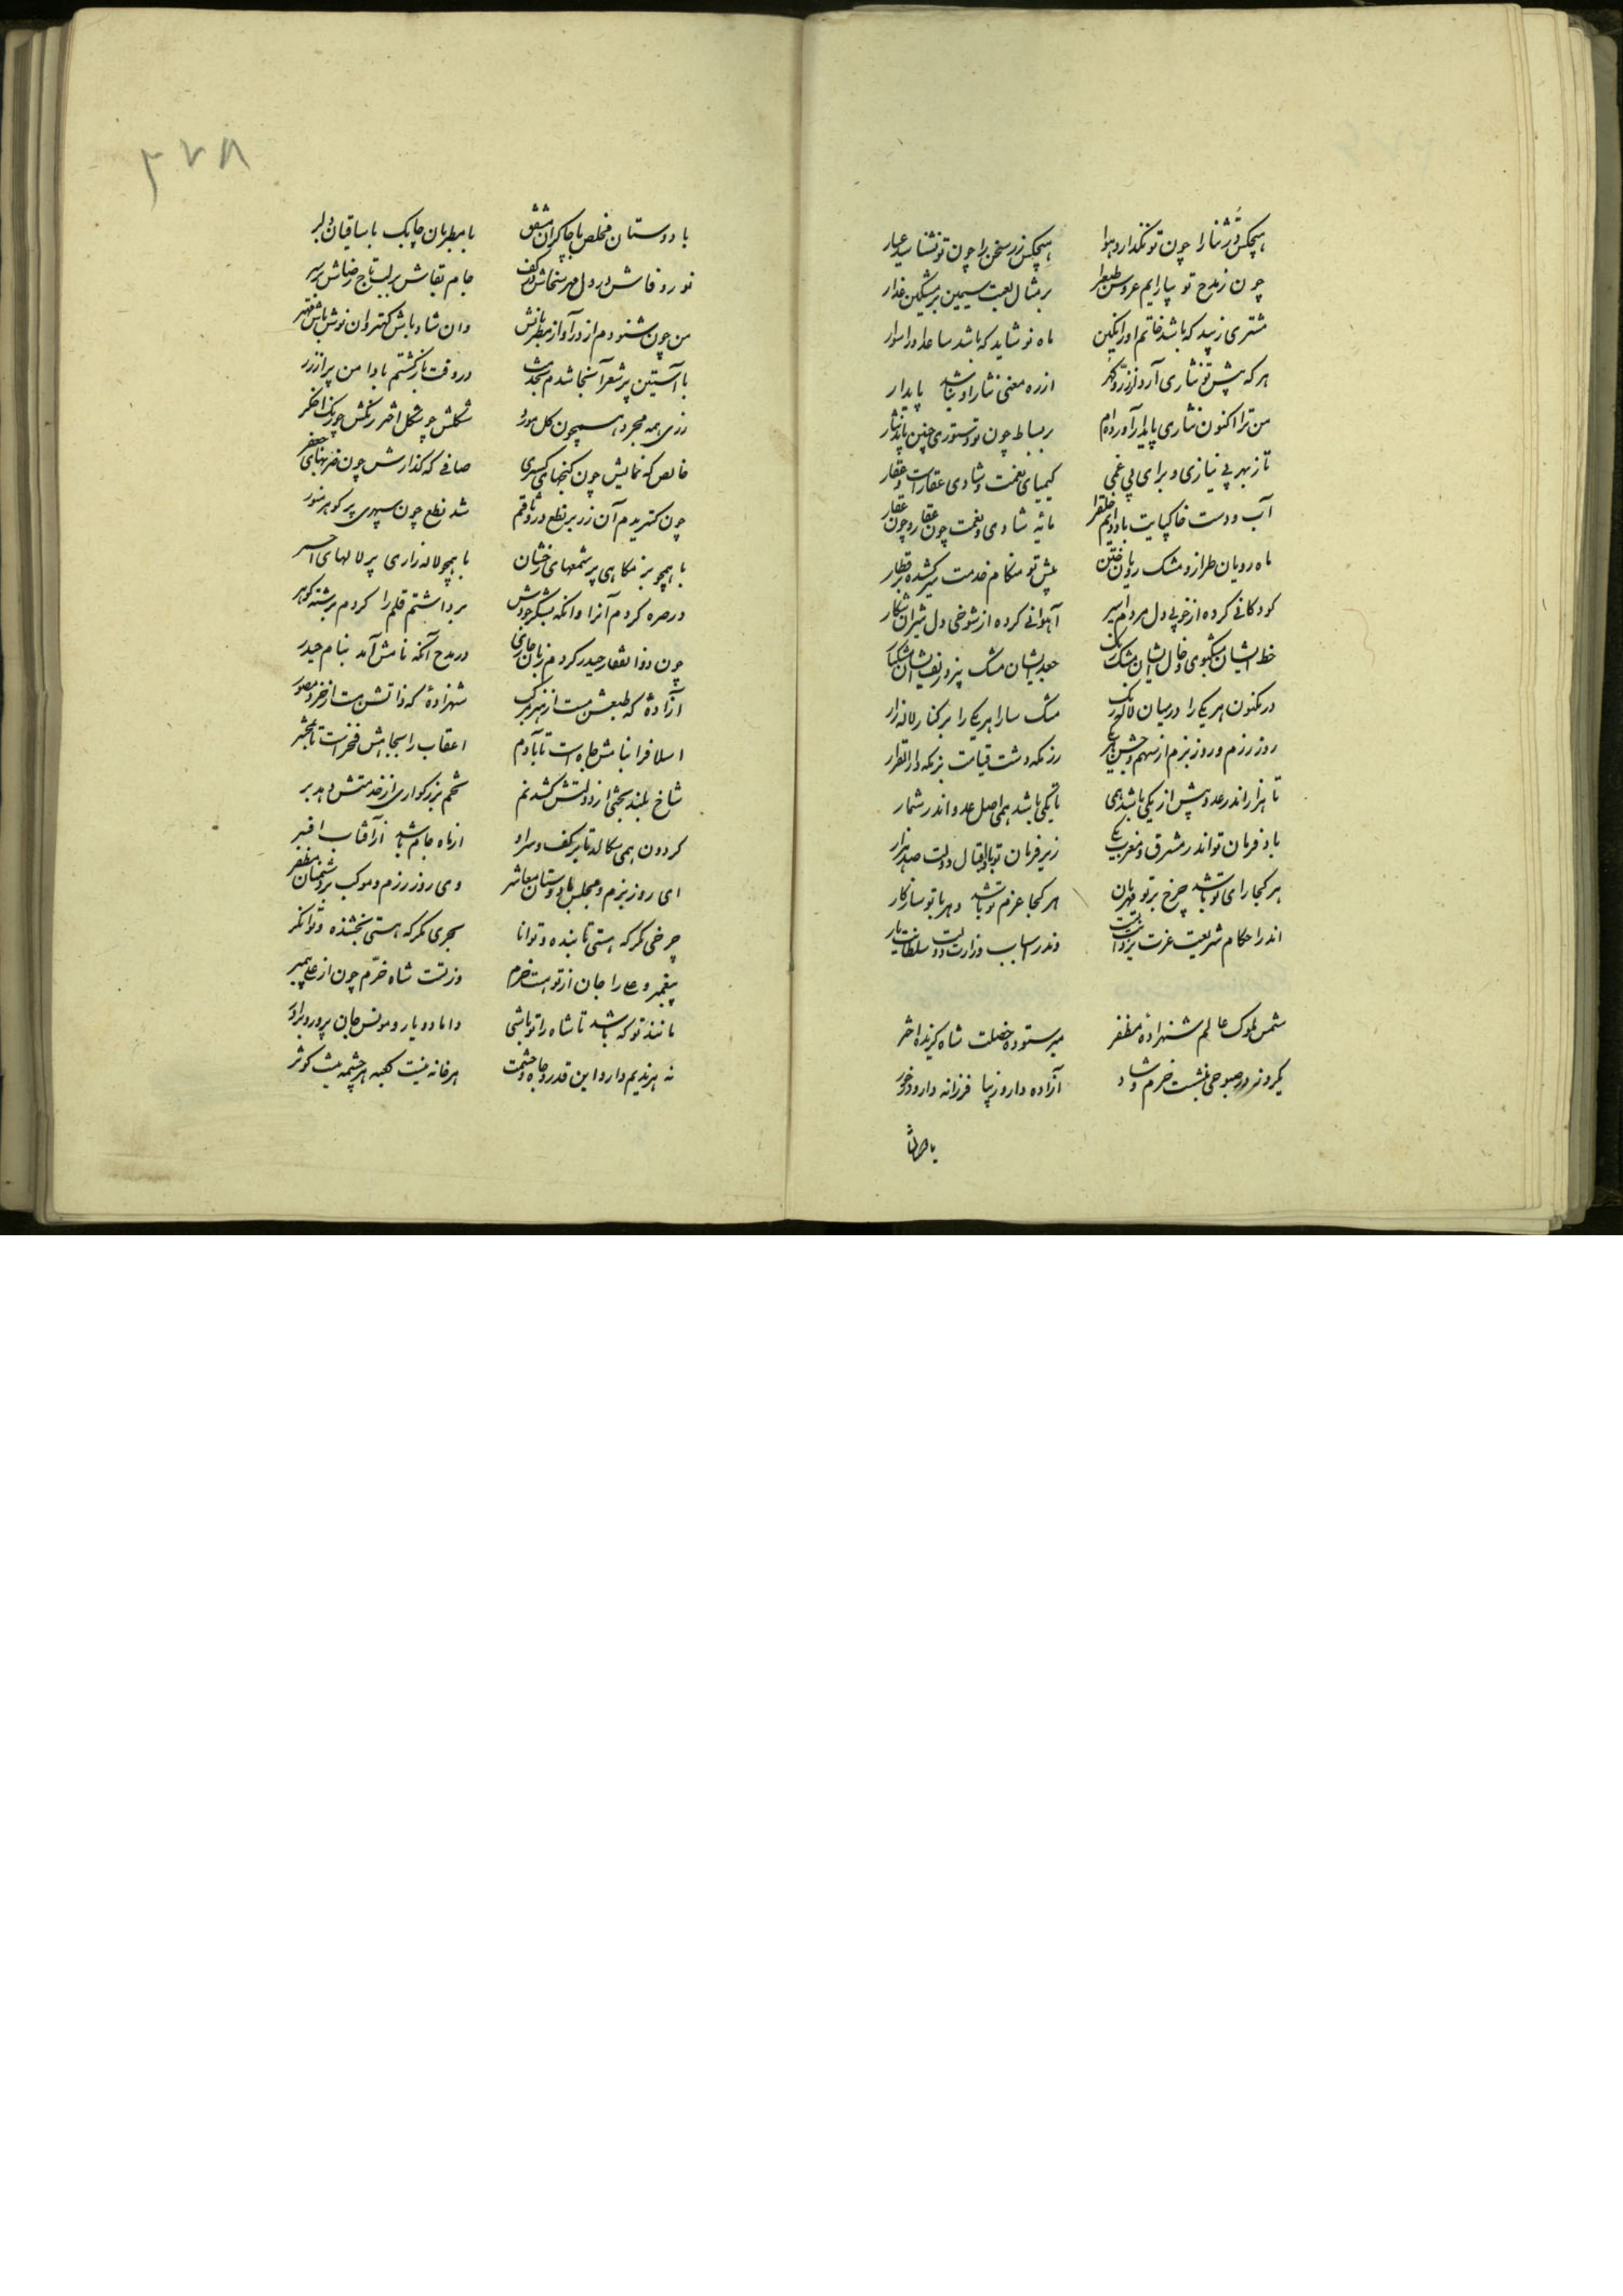 هیچکس دُرّ ثنا را چون تو نگذارد بها هیچکس زر سخن را چون تو نشناسد عیار
چون ز مدح تو بیارایم عروس طبع را بر مثال لعبت سیمین بر مشکین عذار
مشتری زیبد که باشد خاتم او را نگین ماه نو شاید که باشد ساعد او را سوار
هر که پیش تو نثاری آرد از زرّ و گهر از ره معنی نثار او نباشد پایدار
من ترا اکنون نثاری پایدار آورده‌ام بر بساط چون تو دستوری چنین باید نثار
تا ز بهر بی نیازی و برای بی غمی کیمیای نعمت و شادی عقارست و عقار
آب و دست خاکپایت باد دایم خلق را مایه شادی و نعمت چون عقار و چون عقار
ماه رویان طراز و مشک رویان ختن پیش تو هنگام خدمت برکشیده بر قطار
کودکانی کرده از خوبی دل مردم اسیر آهوانی کرده از شوخی دل شیران شکار
خط ایشان مشکبوی و خال ایشان مشک رنگ جعد ایشان مشک بیز و زلف ایشان مشکبار
در مکنون هر یکی را در میان لاله برگ مشک سارا هر یکی را بر کنار لاله زار
روز رزم و روز بزم از سهم و جشن رزمگه دشت قیامت بزمگه دار القرار
تا هزار اندر عدد بیش از یکی باشد همی تا یکی باشد همی اصل عدد اندر شمار
باد فرمان تو اندر مشرق و مغرب یکی زیر فرمان تو باد اقبال و دولت صد هزار
هر کجا رای تو باشد چرخ بر تو مهربان هر کجا عزم تو باشد دهر با تو سازگار
اندر احکام شریعت عزت یزدانت وندر اسباب وزارت دولت سلطانت یار
شمس ملوک عالم شهزاده مظفر میر ستوده خصلت شاه گزیده اختر
یکروز در صبوحی بنشست خرم و شاد آزاده وار و زیبا فرزانه وار و در خور
با دوستان
با دوستان مخلص با چاکران مشفق با مطربان چابک با ساقیان دلبر
نور وفاش در دل مهر سخاش در کف جام بقاش بر لب تاج رضاش بر سر
من چون شنودم از در آواز مطربانش وان شاد باش کهتر وان نوش باش مهتر
با آستین پر شعر آنجا شدم بخدمت در وقت بازگشتم با دامن پر از زر
زری همه مجرد همچون گل مورد شکلش چو شکل اختر رنگش چو رنگ اخگر
خالص گه نمایش چون گنجهای کسری صافی گه گذارش چون ضربهای جعفر
چون گستریدم آن زر بر نطع در وثاقم شد نطع چون سپهری پر گوهر منور
یا همچو بزمگاهی پر شمعهای رخشان یا همچو لاله زاری پر لالهای احمر
در صره کردم آنرا وانگه بشکر جودش برداشتم قلم را کردم برشته گوهر
چون ذوالفقار حیدر کردم زبان جاری در مدح آنکه نامش آمد بنام حیدر
آزاده که طبعش هست از هنر مرکب شهزادۀ که ذاتش هست از خرد مصور
اسلاف را بنامش جاه است تا بآدم اعقاب را بجاهش فخر است تا بمحشر
شاخ بلند بختی از دولتش کشد نم تخم بزرگواری از خدمتش دهد بر
گردون همی سگالد تا بر کف و سر او از ماه جام باشد از آفتاب افسر
ای روز بزم و مجلس با دوستان معاشر وی روز رزم و موکب بر دشمنان مظفر
چرخی مگر که هستی تابنده و توانا بحری مگر که هستی بخشنده و توانگر
پیغمبر و علی را جان از تو هست خرم وز تست شاه خرّم چون از علی پیمبر
مانند تو که باشد تا شاه را تو باشی داماد و یار و مونس جان پرور و برادر
نه هر ندیم دارد این قدر و جاه و حشمت هر خانه نیست کعبه هر چشمه نیست کوثر
۳۷۸